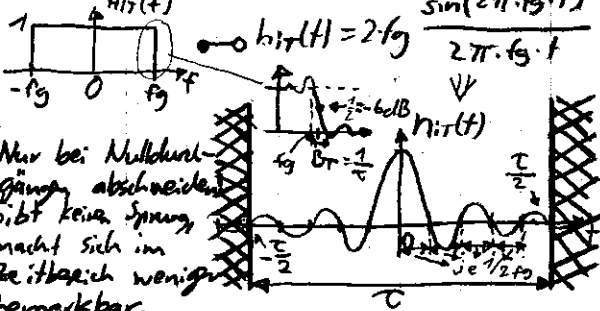 HiT(f)
1
-fg 0 fg f
hiT(t) = 2·fg · sin(2π·fg·t) / 2π·fg·t
1/2 = -6dB
fg BT = 1/τ
hiT(t)
Nur bei Nulldurch-
gängen abschneiden
gibt keinen Sprung,
macht sich im
Zeitbereich weniger
bemerkbar.
-τ/2 0 je 1/2fg τ/2 t
τ